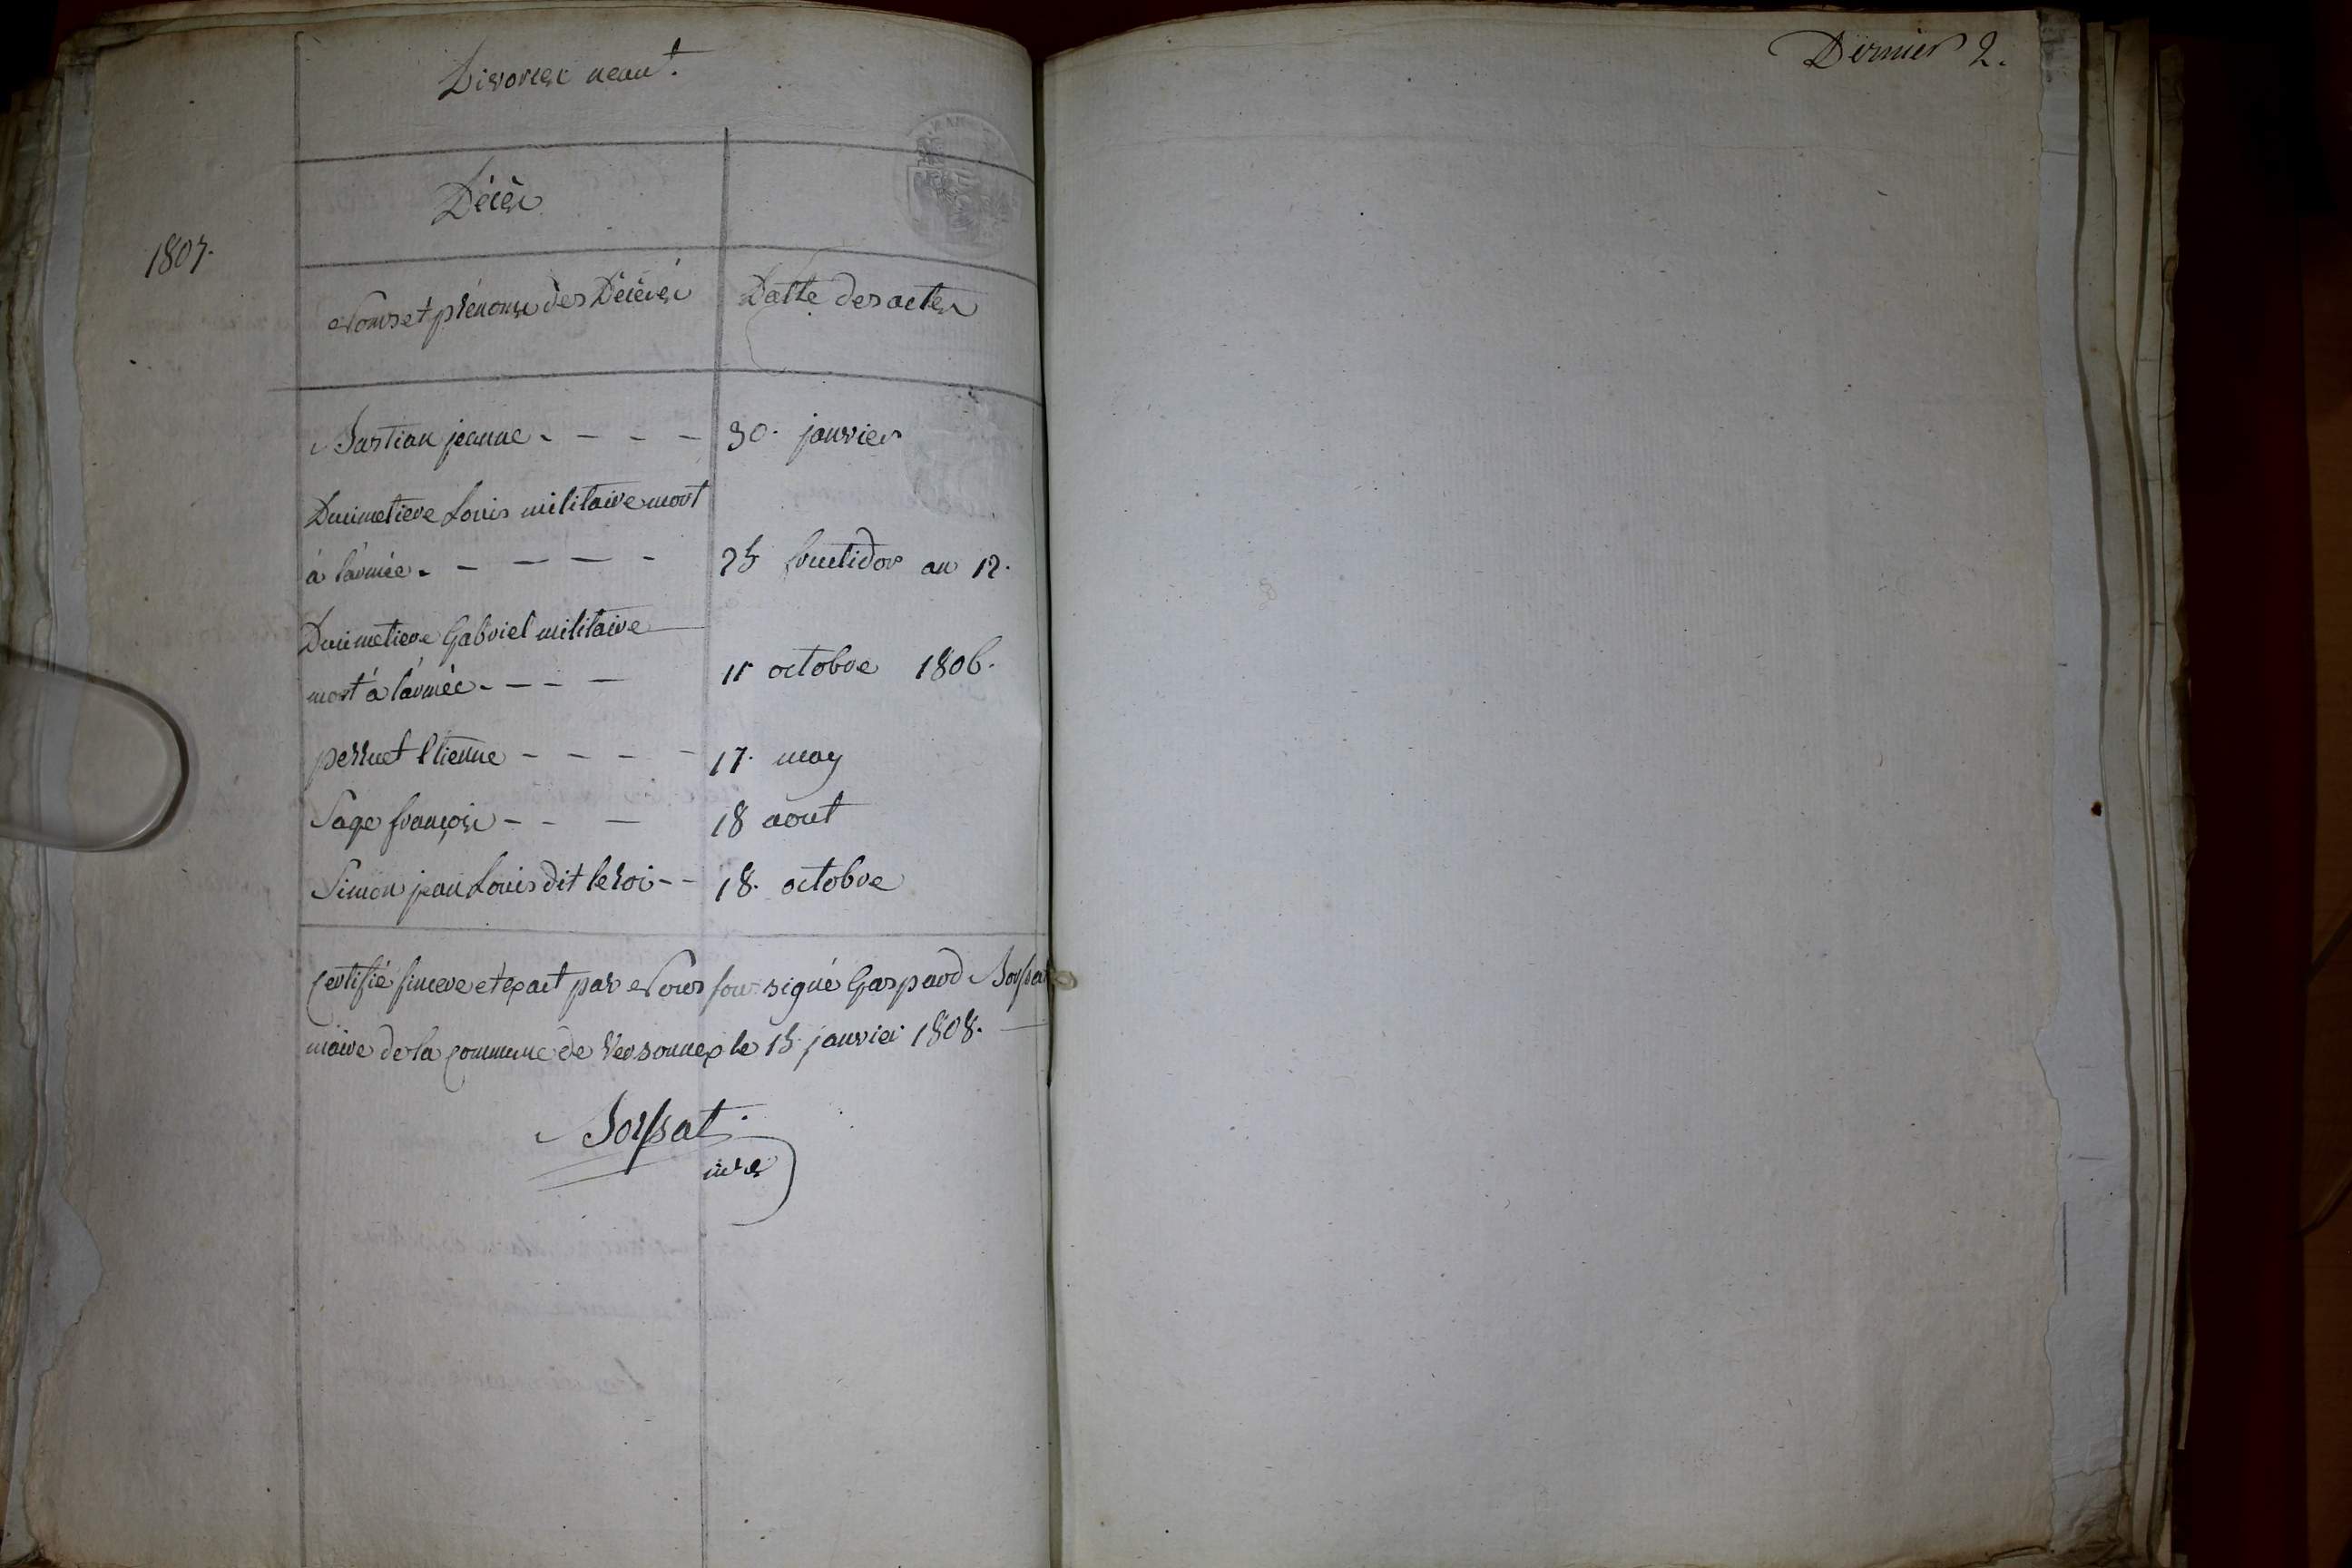 Divorces neant.
Décès
1807.
Noms et prénoms des Décédés
Datte des actes
Bastian jeanne - - - -
30. janvier
Ducimetiere Louis militaire mort
à l'armée - - - - -
25 fructidor an 12.
Ducimetiere Gabriel militaire
mort à l'armée - - - -
11 octobre 1806.
perruet Etienne - - - -
17. may
Sage françois - - -
18 aout
Simon jean Louis dit le roi - -
18. octobre
Certifié sincere et exact par Nous soussigné Gaspard
maire de la commune de Versonnex le 15 janvier 1808.
Dernier 2.